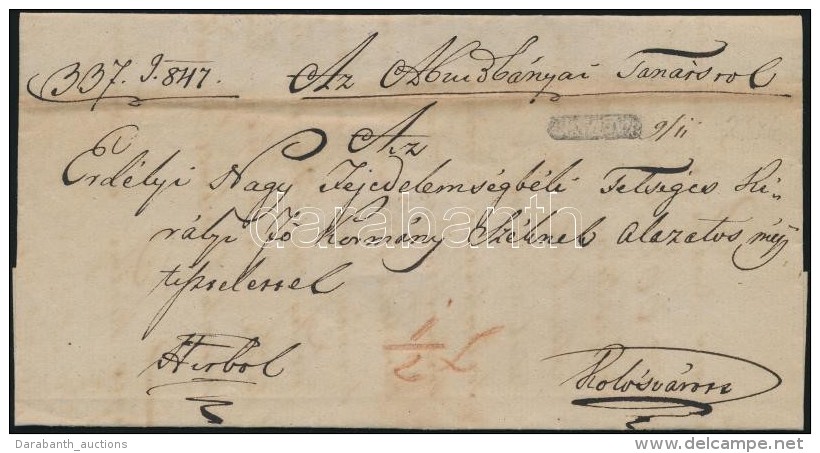 337. I. 847. Az Abrudbányai Tanátstol
9/11
Az
Erdélyi Nagy Fejedelemségbéli Felséges Ki-
rályi Fő Kormány Széknek alazatos még
tisztelessel
darabanth
Hivbol
1/2 L
Kolosváron
Darabanth_auctions
www.delcampe.net